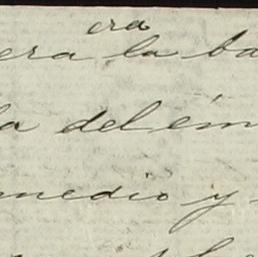 era
era la ba
a del ém
medio y